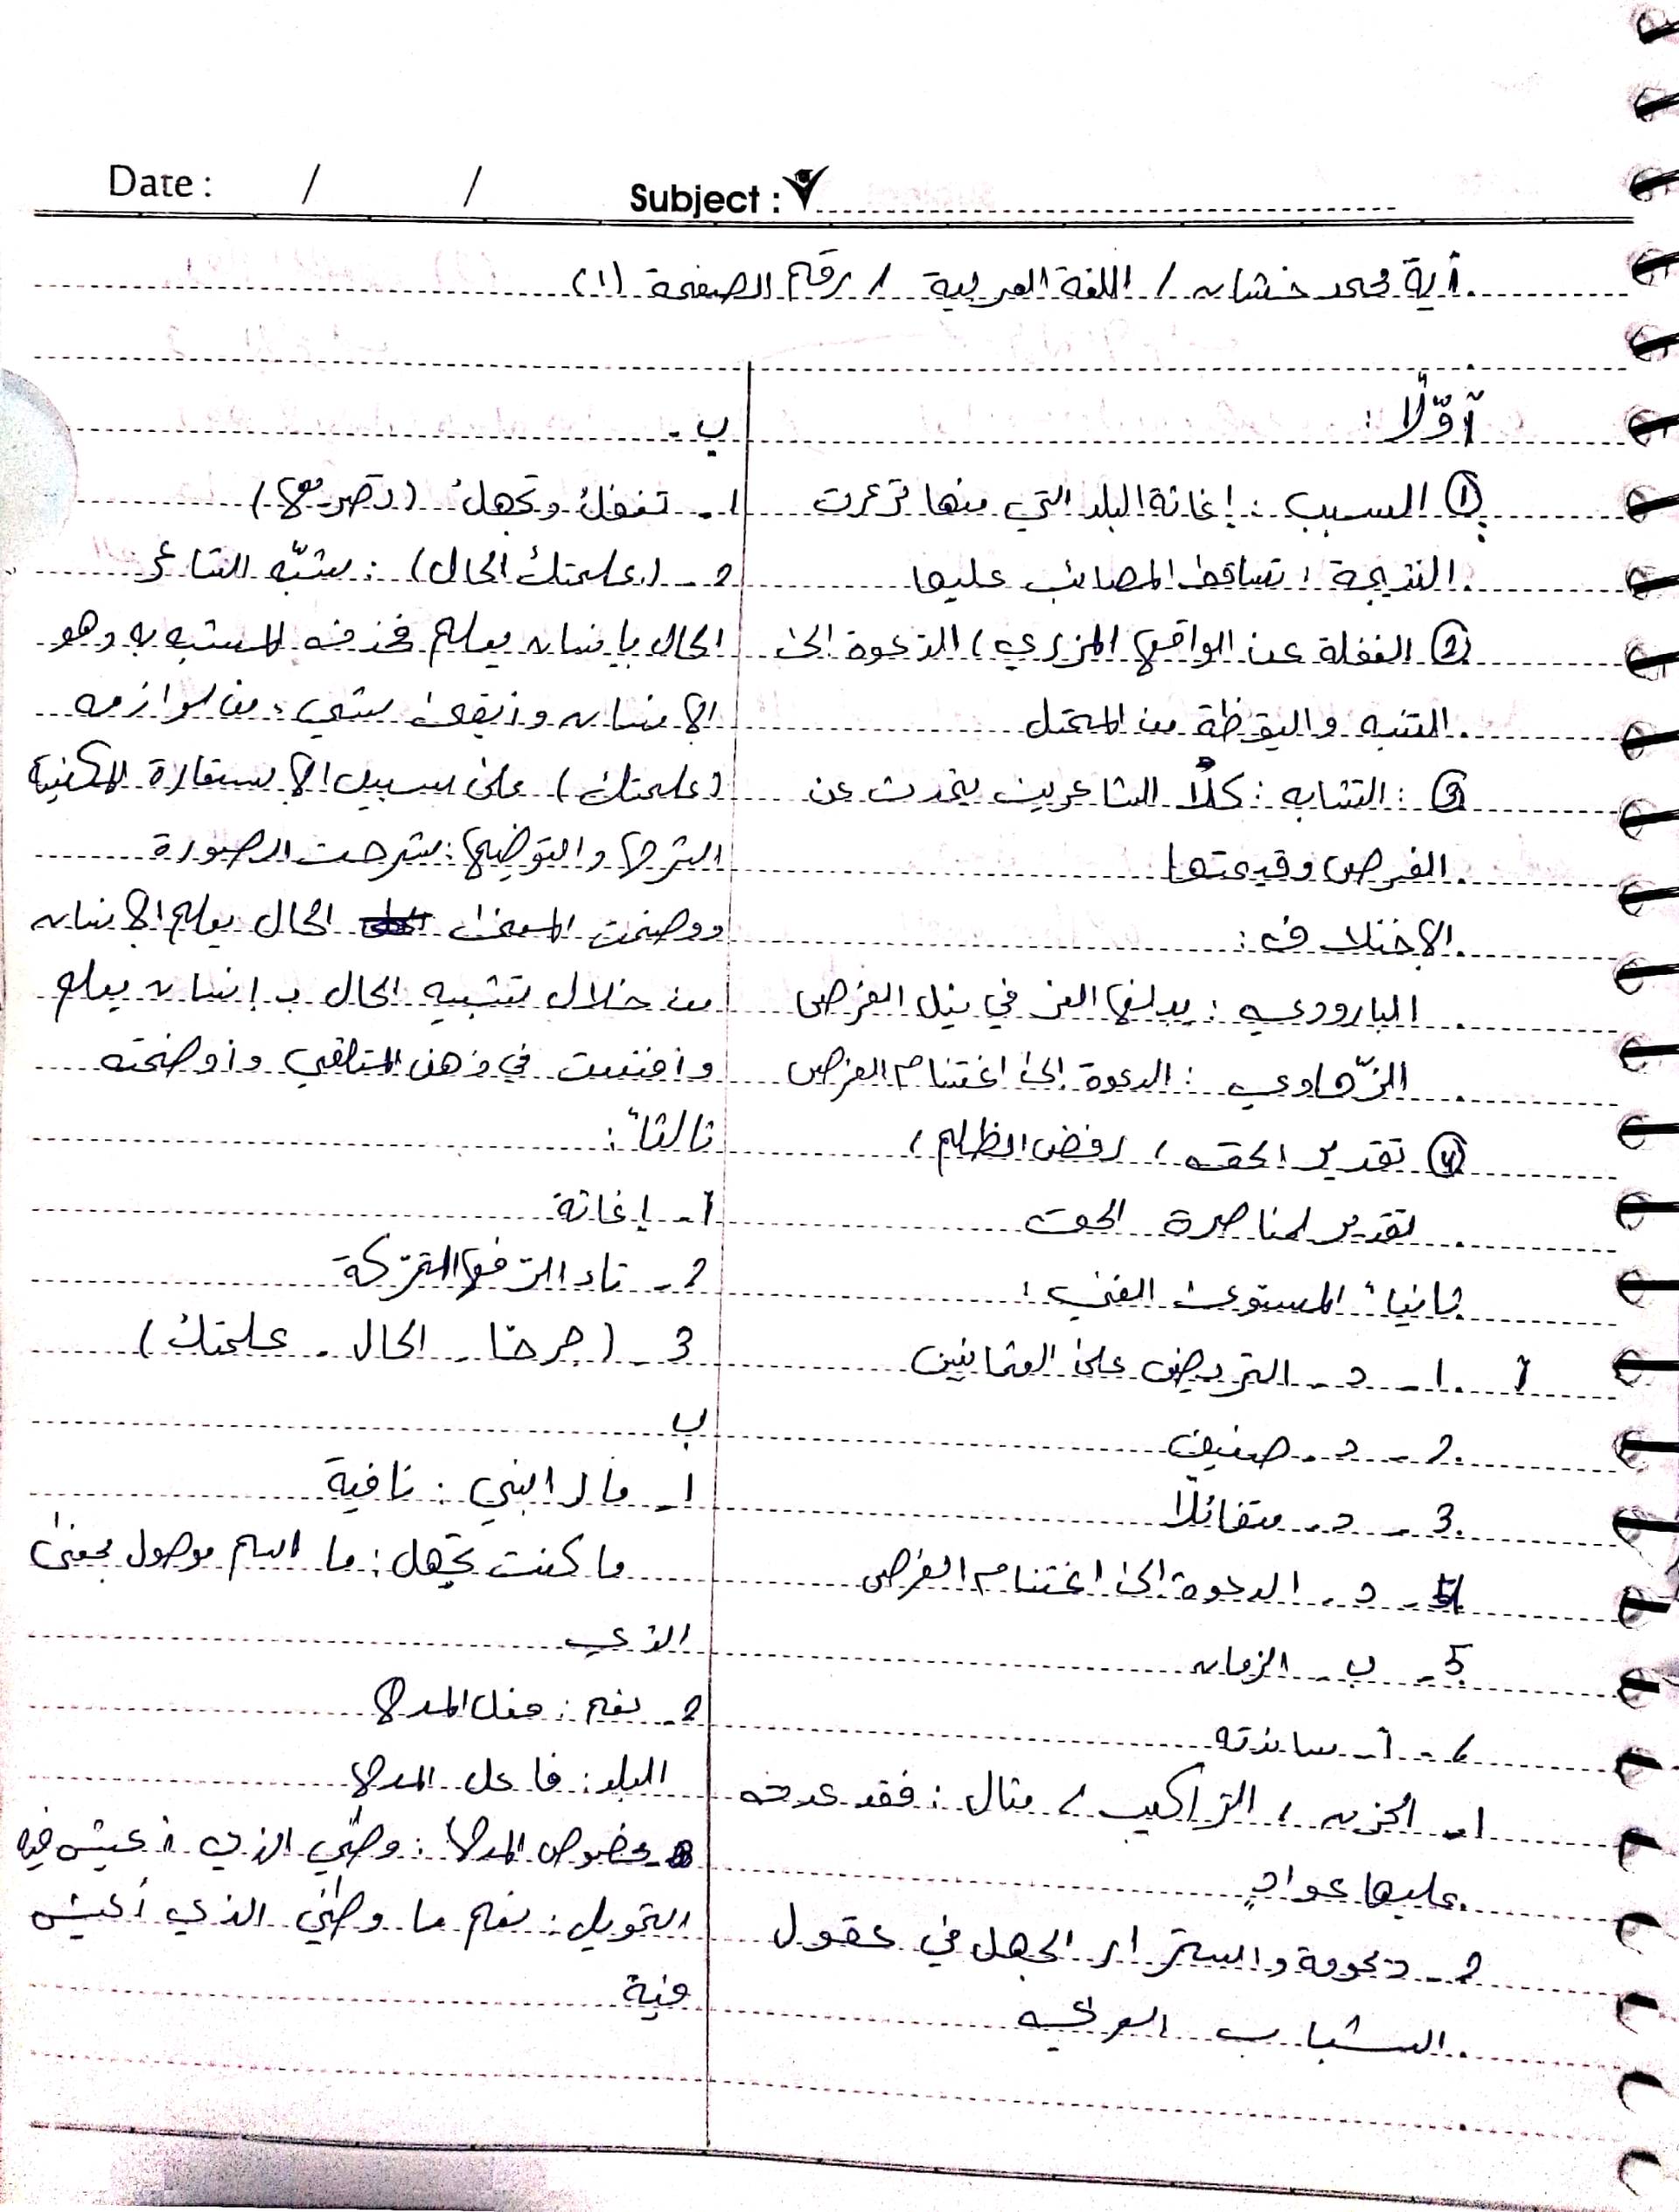 Date : / / Subject :
آية محمد خشان / اللغة العربية / رقم الصفحة (١)
أوّلًا :
① السبب : إغاثة البلد التي منها ترعرت
النتيجة : تساقط المصائب عليها
② الغفلة عن الواقع المزري / الدعوة الى
التنبه واليقظة من المحتل
③ : التشابه : كلًا الشاعرين يتحدث عن
الفرص وقيمتها
الاختلاف :
البارودي : يبلغ العز في نيل الفرص
الزّهاوي : الدعوة إلى اغتنام الفرص
④ تقدير الحق / رفض الظلم /
تقدير لمناصرة الحق
ثانياً المستوى الفني :
أ 1 - د - التحريض على العثمانيين
2 - د - صنيف
3 - د - متفائلًا
4 - د - الدعوة الى اغتنام الفرص
5 - ب - الزمان
6 - أ - ساندته
1 - الحزن / التراكيب / مثال : فقد عدته
عليها عوادٍ
2 - ديمومة واستمرار الجهل في عقول
الشباب العربي
ب -
1 - تغفلُ وتجهلُ (تصريع)
2 - (علمتك الحال) : شبّه الشاعر
الحال بإنسان يعلم فحذف المشبه به وهو
الإنسان وأبقى شيء من لوازمه
(علمتك) على سبيل الاستعارة المكنية
الشرح والتوضيح : شرحت الصورة
ووضحت المعنى الحال يعلم الإنسان
من خلال تشبيه الحال بـ إنسان يعلم
في ذهن المتلقي وأوضحته
ثالثاً :
1 - إغاثة
2 - تاء الرفع المتحركة
3 - ( الحال - علمتك)
ب
1 - ما النبي : نافية
ما كنت تجهل : ما اسم موصول بمعنى
الذي
2 - نعم : فعل المدح
البلد : فاعل المدح
مخصوص المدح : وطني الذي أعيش فيه
التحويل : نعم ما وطني الذي أعيش
فية